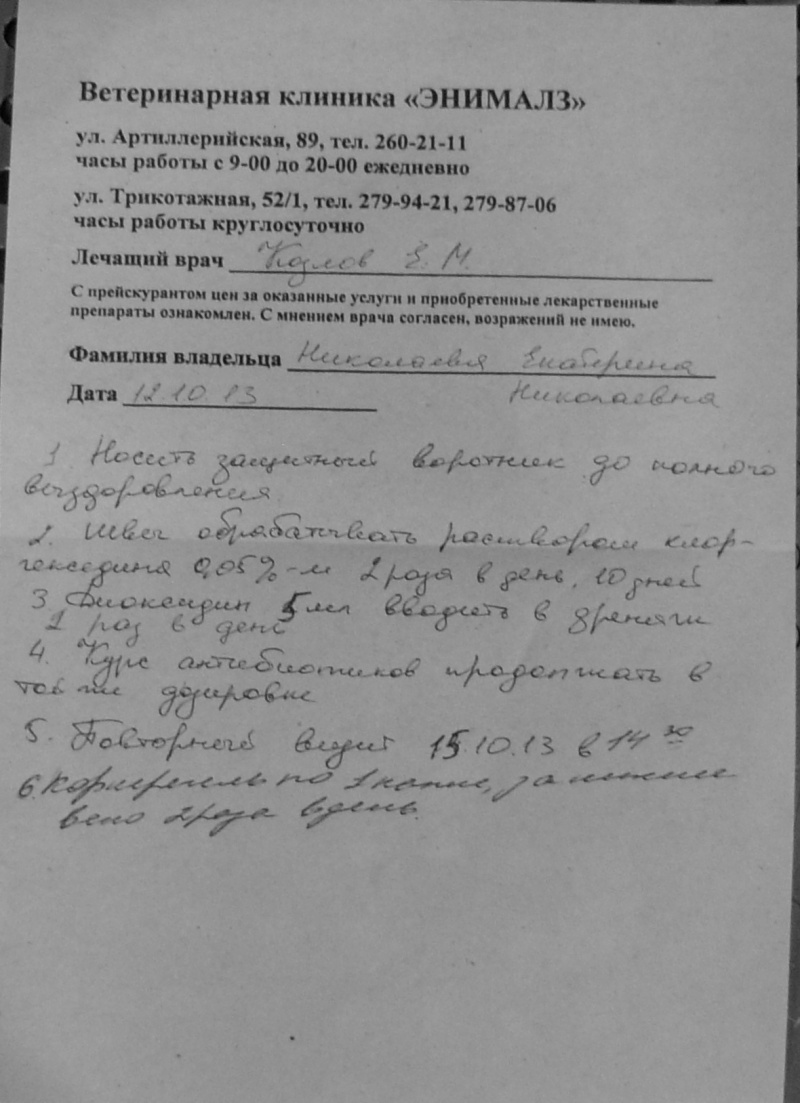 Ветеринарная клиника «ЭНИМАЛЗ»
ул. Артиллерийская, 89, тел. 260-21-11
часы работы с 9-00 до 20-00 ежедневно
ул. Трикотажная, 52/1, тел. 279-94-21, 279-87-06
часы работы круглосуточно
Лечащий врач Козлов Е. М.
С прейскурантом цен за оказанные услуги и приобретенные лекарственные
препараты ознакомлен. С мнением врача согласен, возражений не имею.
Фамилия владельца Николаевя Екатерина
Дата 12.10.13 Николаевна
1 Носить защитный воротник до полного
выздоровления
2. Швы обрабатывать раствором хлор-
гекседина 0,05%-м 2 раза в день. 10 дней
3 Диоксидин 5 мл вводить в дренажи
1 раз в день
4. Курс антибиотиков продолжать в
той же дозировке
5. Повторный визит 15.10.13 в 14 30
6. Корнерегель по 1 капле, за нижнее
веко 2 раза в день.